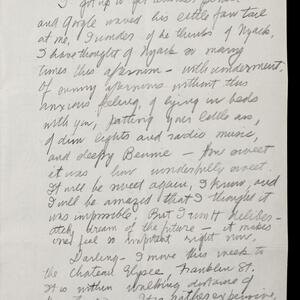 I got up to get another pencil
and Google waved his little fan tail
at me, I wonder if he thinks of Nyack,
I have thought of Nyack so many
times this afternoon – with wonderment.
Of sunny afternoons without this
anxious feeling, of lying in beds
with you, patting your little ass,
of dim lights and radio music,
and sleepy Bennie – how sweet
it was how wonderfully sweet.
It will be sweet again, I know, and
I will be amazed that I thought it
was impossible. But I won't deliber-
ately dream of the future – it makes
one feel so impotent right now.
Darling – I move this week to
the Chateau Elysee, Franklin St.
It is within walking distance of
rather expensive,